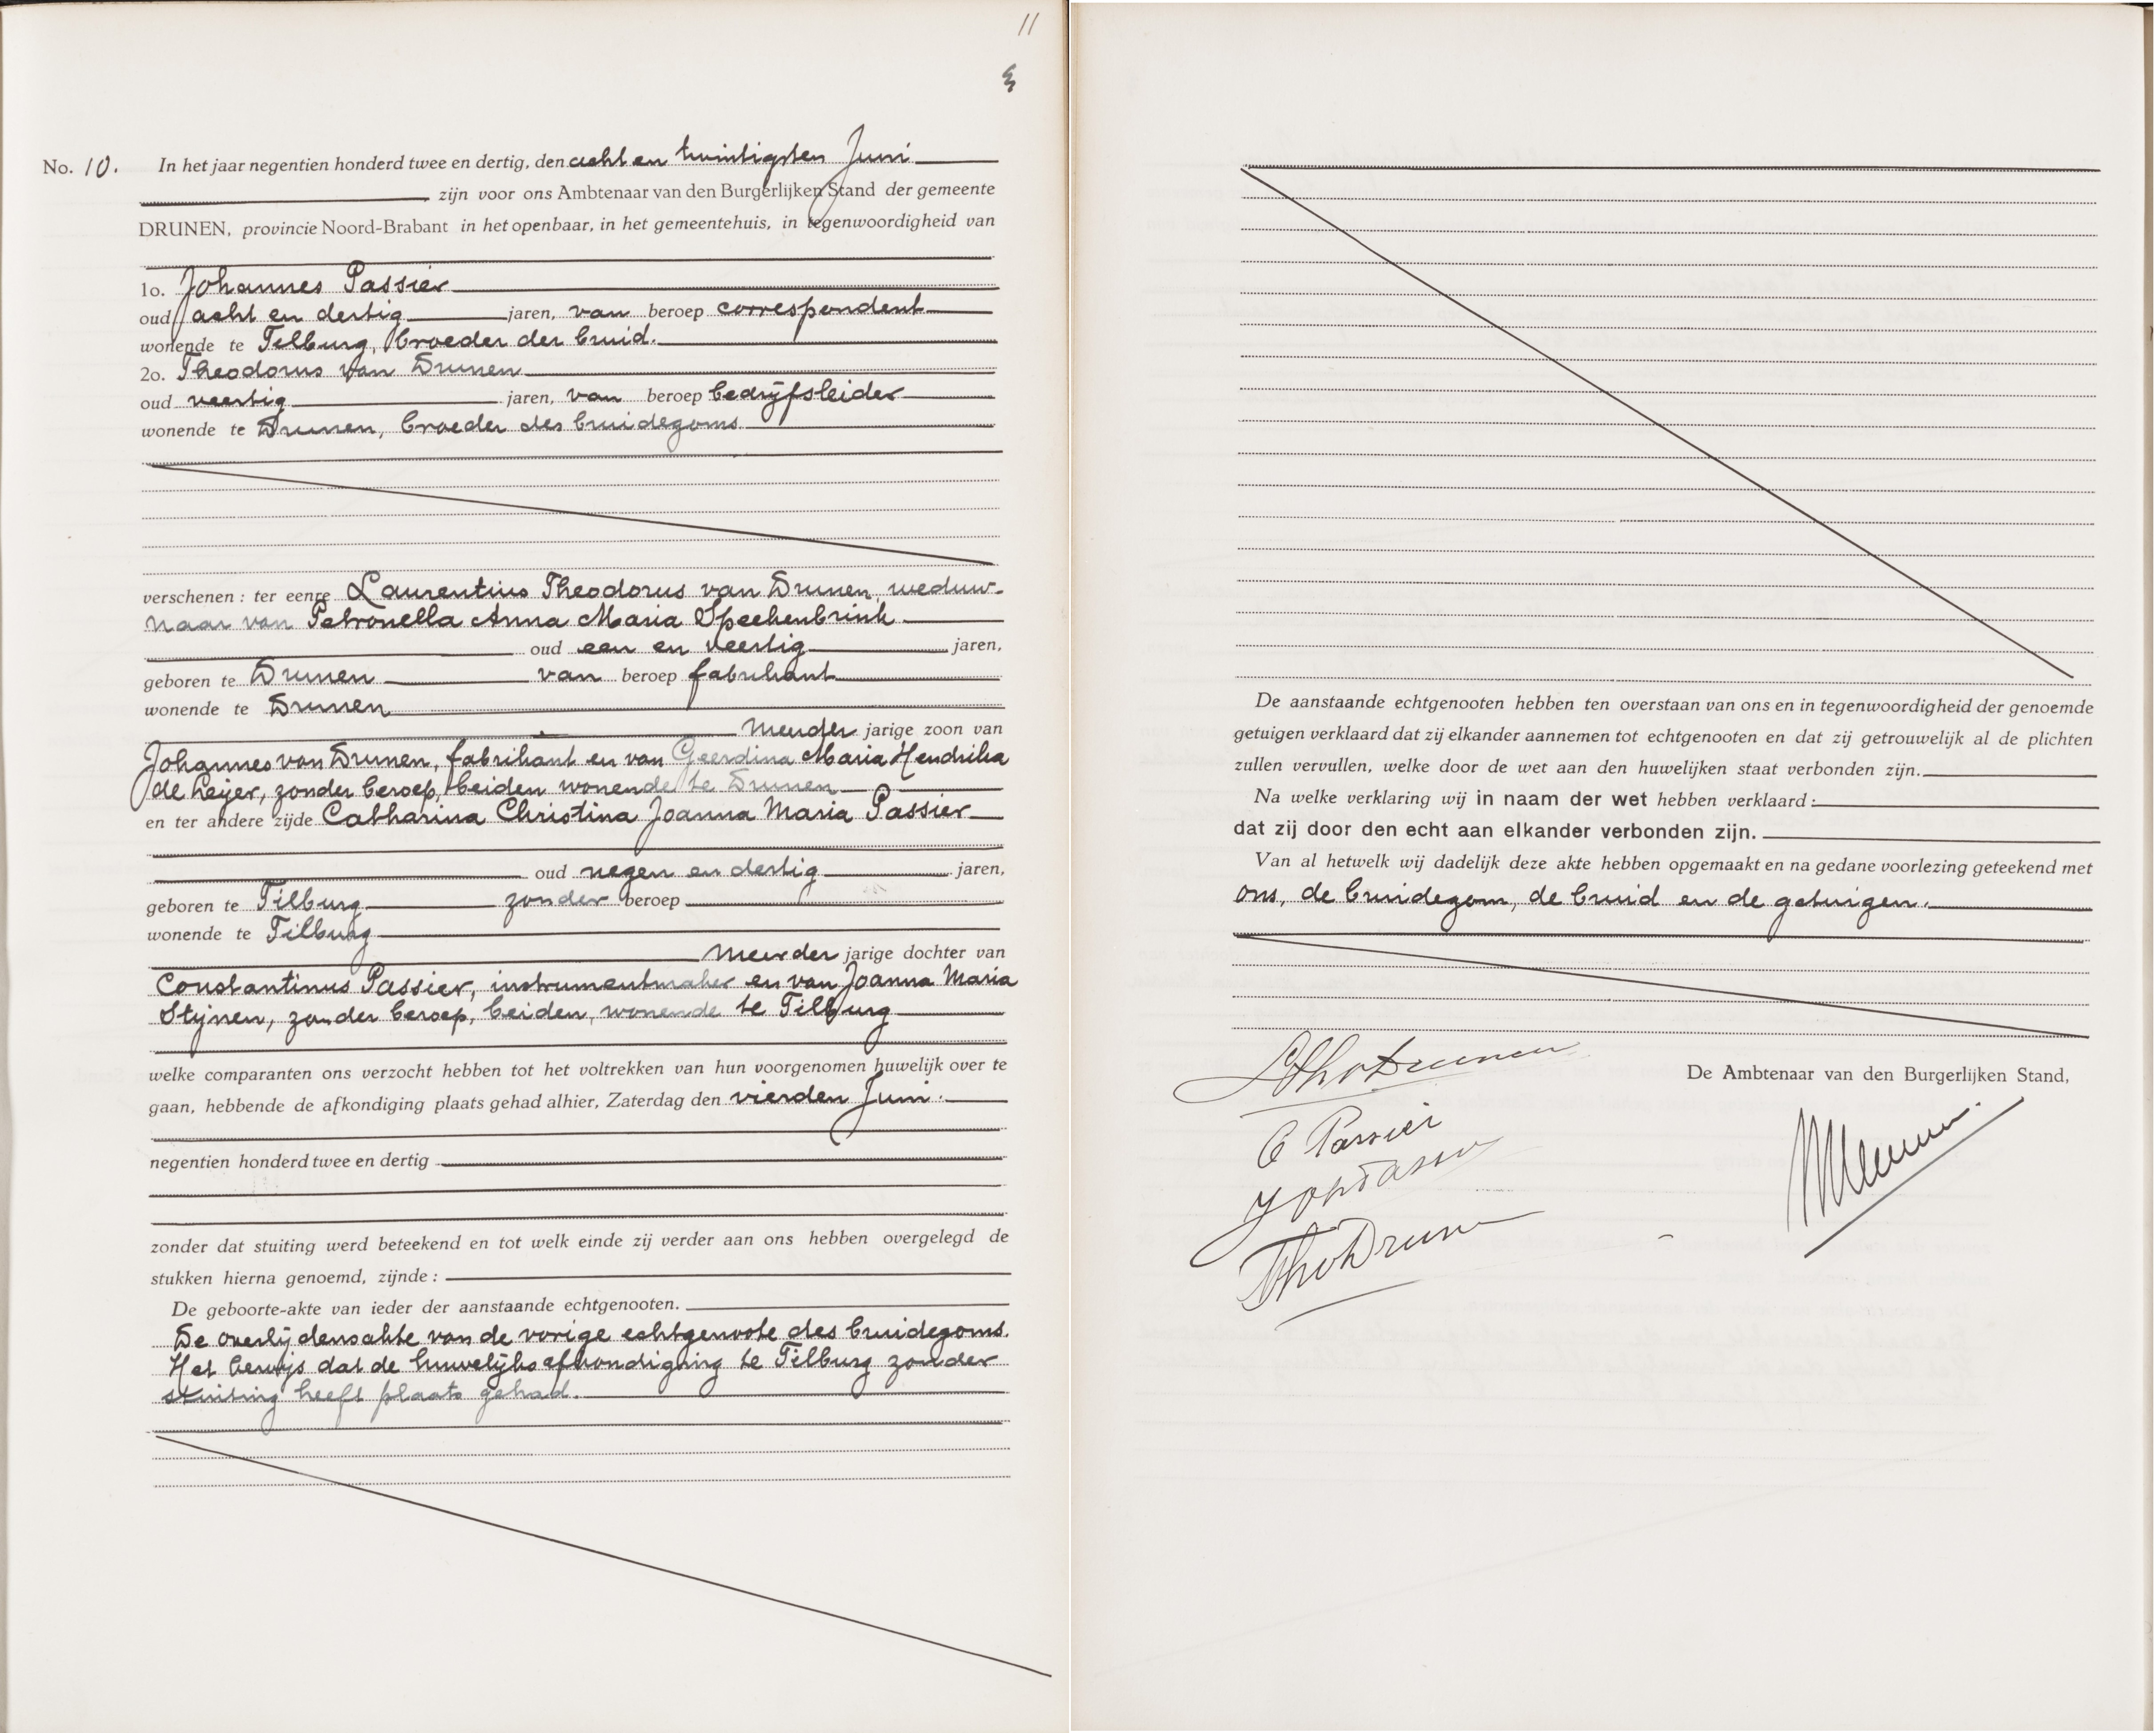 11
No. 10. In het jaar negentien honderd twee en dertig, den acht en twintigsten Juni
zijn voor ons Ambtenaar van den Burgerlijken Stand der gemeente
DRUNEN, provincie Noord-Brabant in het openbaar, in het gemeentehuis, in tegenwoordigheid van
1o. Johannes Passier
oud acht en dertig jaren, van beroep correspondent
wonende te Tilburg, broeder der bruid.
2o. Theodorus van Drunen
oud veertig jaren, van beroep bedrijfsleider
wonende te Drunen, broeder des bruidegoms
verschenen: ter eenre Laurentius Theodorus van Drunen, weduw-
naar van Petronella Anna Maria Speekenbrink
oud een en veertig jaren,
geboren te Drunen van beroep fabrikant
wonende te Drunen
meerder jarige zoon van
Johannes van Drunen, fabrikant en van Geerdina Maria Hendrika
de Leijer, zonder beroep, beiden wonende te Drunen
en ter andere zijde Catharina Christina Joanna Maria Passier
oud negen en dertig jaren,
geboren te Tilburg zonder beroep
wonende te Tilburg
meerder jarige dochter van
Constantinus Passier, instrumentmaker en van Joanna Maria
Stijnen, zonder beroep, beiden, wonende te Tilburg
welke comparanten ons verzocht hebben tot het voltrekken van hun voorgenomen huwelijk over te
gaan, hebbende de afkondiging plaats gehad alhier, Zaterdag den vierden Juni.
negentien honderd twee en dertig
zonder dat stuiting werd beteekend en tot welk einde zij verder aan ons hebben overgelegd de
stukken hierna genoemd, zijnde:
De geboorte-akte van ieder der aanstaande echtgenooten.
De overlijdensakte van de vorige echtgenoote des bruidegoms.
Het bewijs dat de huwelijksafkondiging te Tilburg zonder
stuiting heeft plaats gehad.
De aanstaande echtgenooten hebben ten overstaan van ons en in tegenwoordigheid der genoemde
getuigen verklaard dat zij elkander aannemen tot echtgenooten en dat zij getrouwelijk al de plichten
zullen vervullen, welke door de wet aan den huwelijken staat verbonden zijn.
Na welke verklaring wij in naam der wet hebben verklaard:
dat zij door den echt aan elkander verbonden zijn.
Van al hetwelk wij dadelijk deze akte hebben opgemaakt en na gedane voorlezing geteekend met
ons, de bruidegom, de bruid en de getuigen.
De Ambtenaar van den Burgerlijken Stand,
C Passier